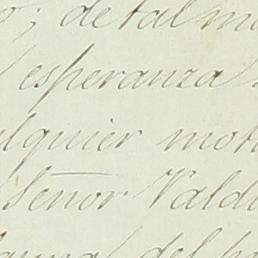 ; de tal m
esperanza
lquier mot
Señor Vald
del